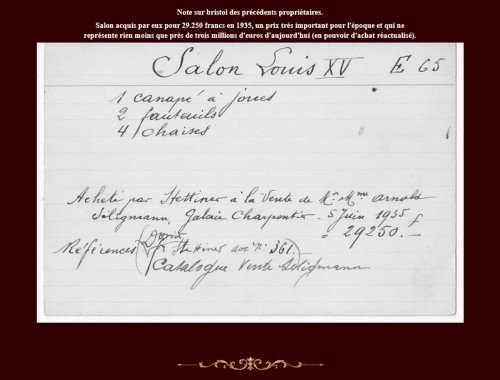 Note sur bristol des précédents propriétaires.
Salon acquis par eux pour 29.250 francs en 1935, un prix très important pour l'époque et qui ne
représente rien moins que près de trois millions d'euros d'aujourd'hui (en pouvoir d'achat réactualisé).
Salon Louis XV E 65
1 canapé à joues
2 fauteuils
4 chaises
Acheté par Stettiner à la Vente de Mr. Mme Arnold
Séligmann, Galerie Charpentier 5 Juin 1935
29250.— f
Références
Stettiner doc No: 361.
Catalogue Vente Seligmann